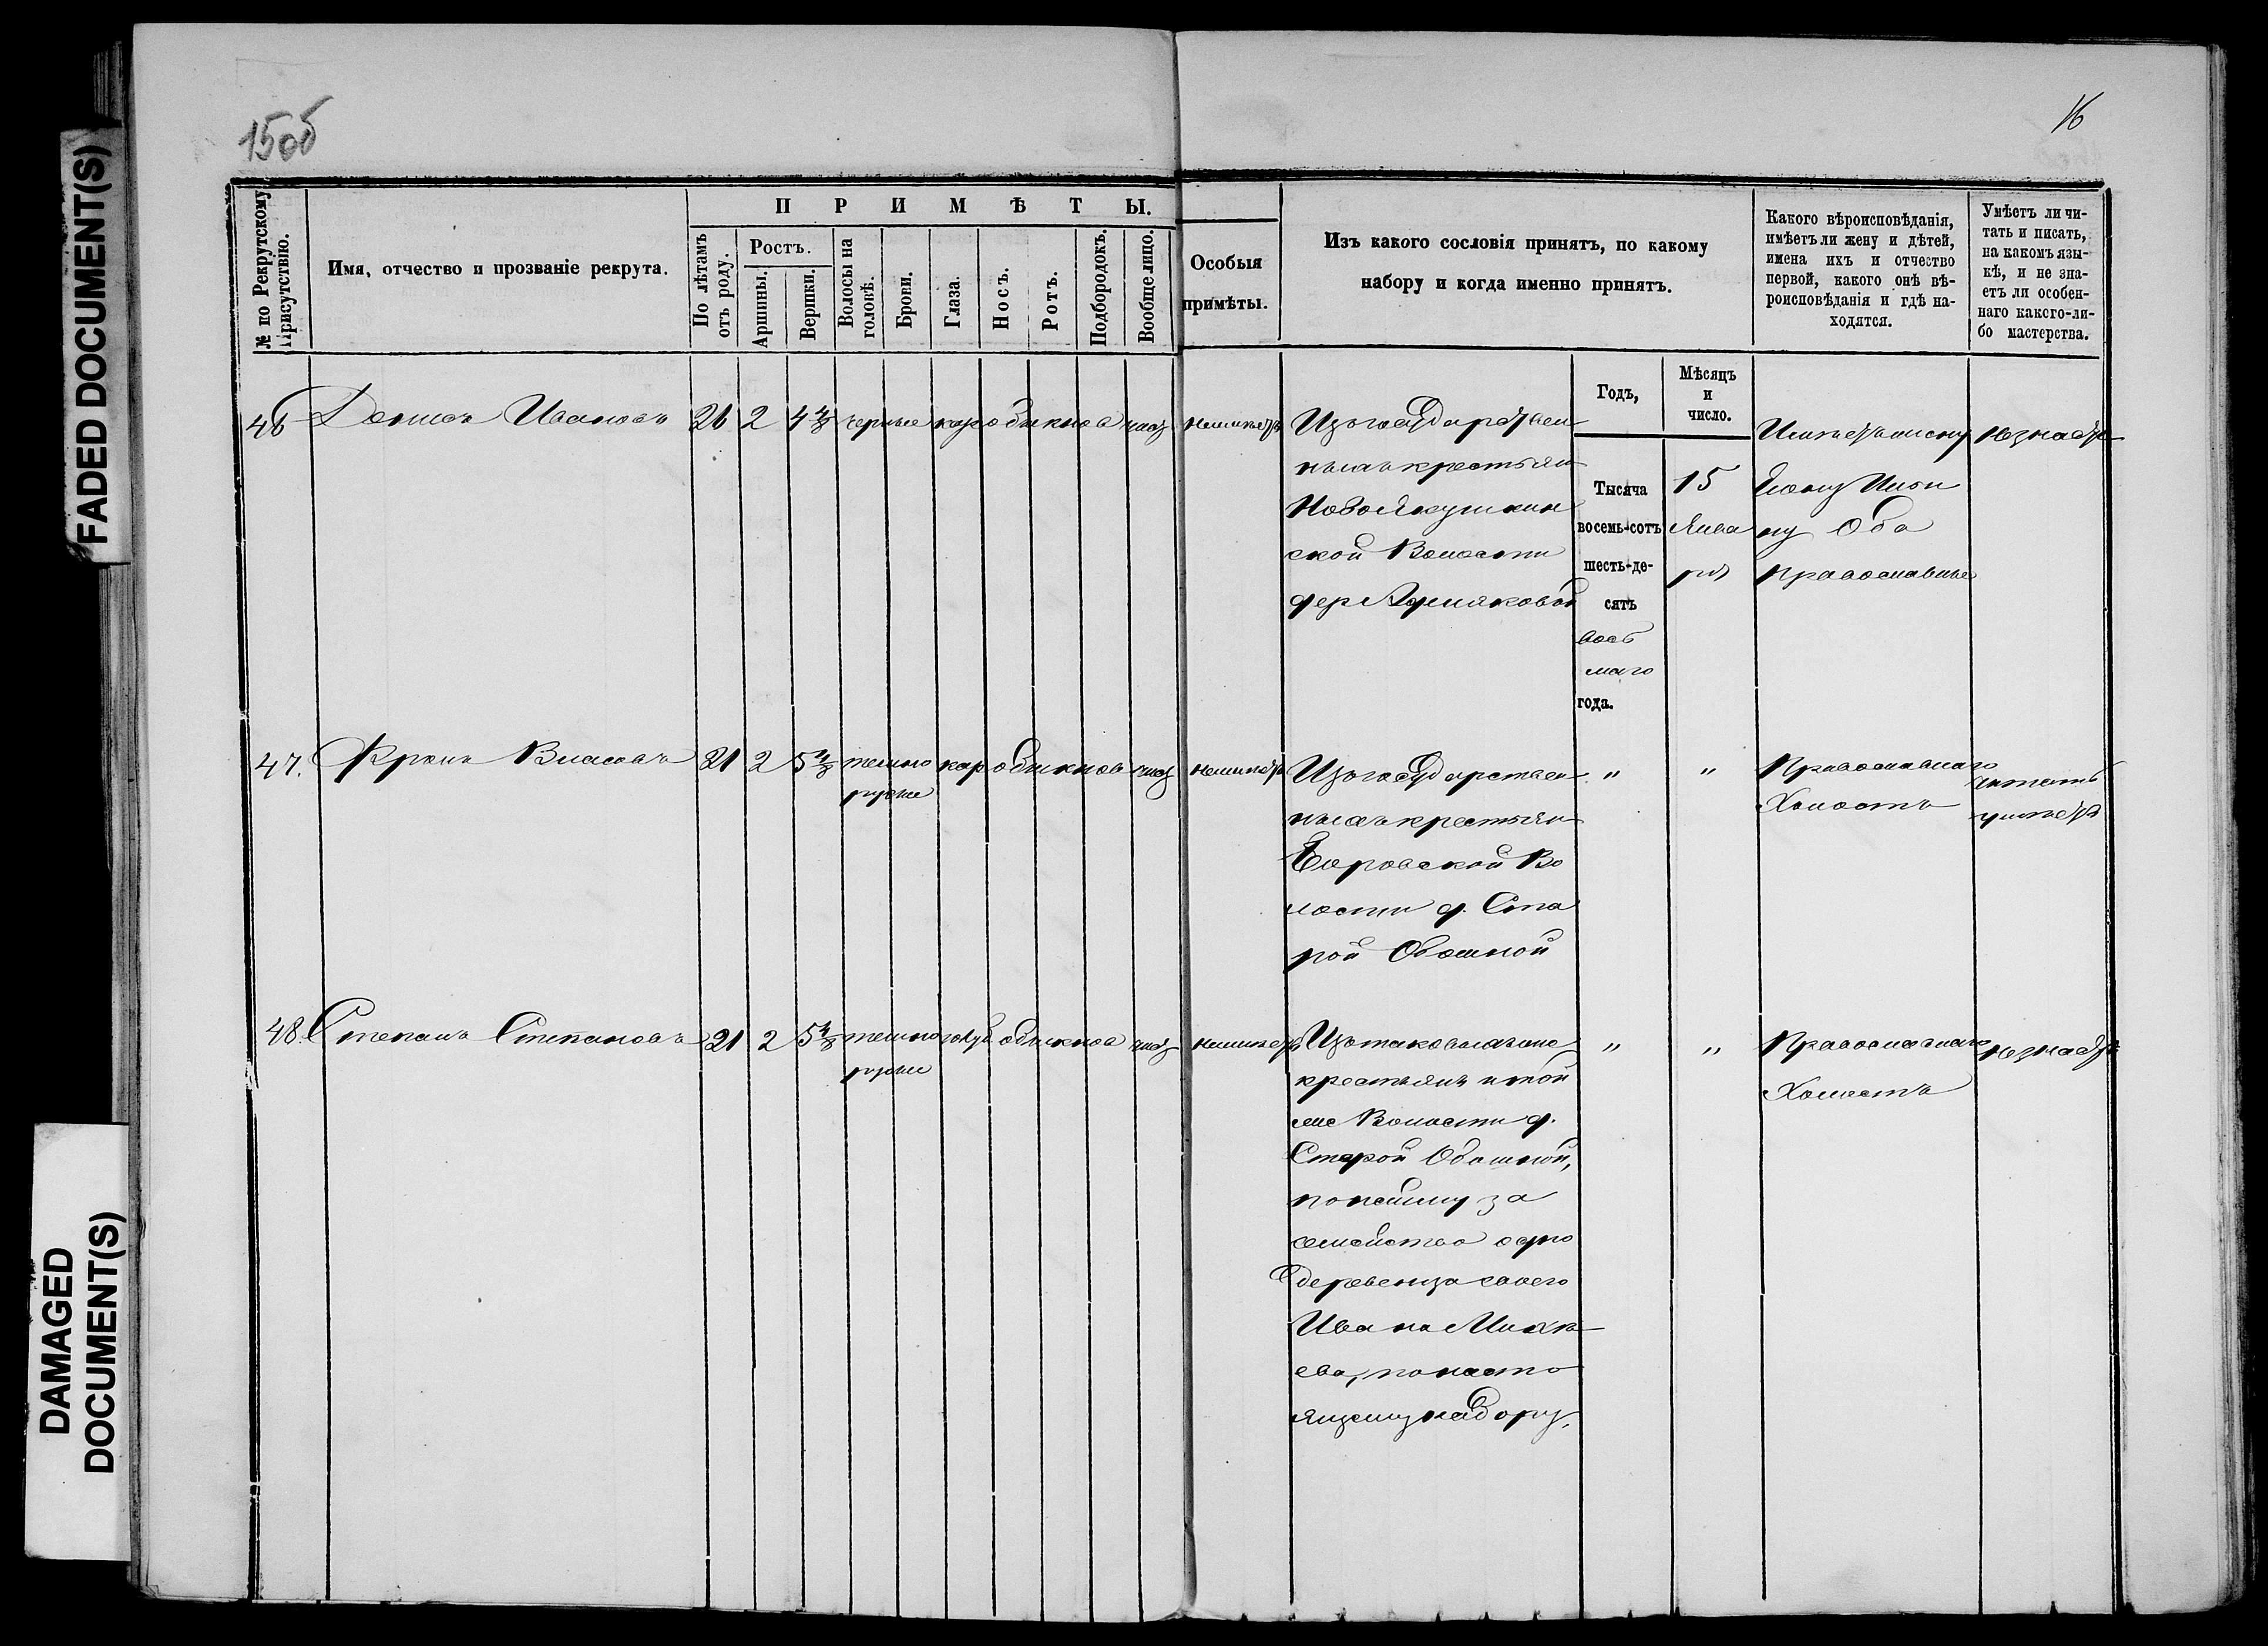 FADED DOCUMENT(S)
DAMAGED
DOCUMENT(S)
15об
16
№ по Рекрутскому
Присутствію.
Имя, отчество и прозваніе рекрута.
П Р И М Ѣ Т Ы.
По лѣтамъ
отъ роду.
Ростъ.
Аршины.
Вершки.
Волосы на
головѣ.
Брови.
Глаза.
Носъ.
Ротъ.
Подбородокъ.
Вообще лицо.
Особыя
примѣты.
Изъ какого сословія принятъ, по какому
набору и когда именно принятъ.
Какого вѣроисповѣданія,
имѣетъ ли жену и дѣтей,
имена ихъ и отчество
первой, какого онѣ вѣ-
роисповѣданія и гдѣ на-
ходятся.
Умѣетъ ли чи-
тать и писать,
на какомъ язы-
кѣ, и не зна-
етъ ли особен-
наго какого-ли-
бо мастерства.
Годъ,
Мѣсяцъ
и
число.
46 Денисъ Ивановъ 26 2 4 4/8 черные кар обикнов чист неимѣетъ
Изъ государствен
ныхъ крестьян
Новоякушкин
ской Волости
дер
Тысяча
восемь-сотъ
шесть-де-
сятъ
вось
маго
года.
15
Янва
ря
Имѣетъ жену
ну Оба
православные
незнаетъ
47. Власовъ 21 2 5 4/8 темно кар обикнов чист неимѣетъ
русые
Изъ государствен
ныхъ крестьян
Боровской Во
лости д. Ста
рой
" "
Православнаго
Холостъ
читать
умѣетъ
48. Степанъ Степановъ 21 2 5 4/8 темно голуб обикнов чист неимѣетъ
русые
Изъ таковыхъ же
крестьянъ и той
же Волости д.
Старой
по найму за
семейство одно
деревенца своего
Ивана Михѣ
ева, по насто
ящему набору.
" "
Православнаго
Холостъ
незнаетъ